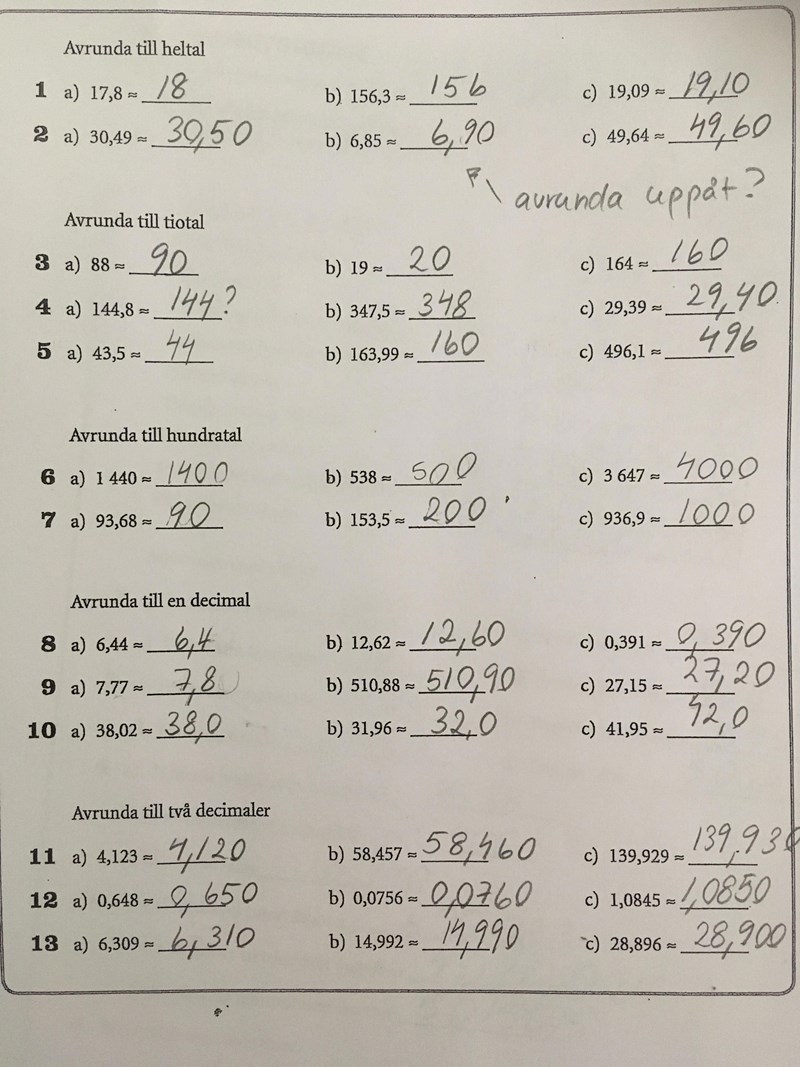 Avrunda till heltal
1 a) 17,8 ≈ 18 b) 156,3 ≈ 156 c) 19,09 ≈ 19,10
2 a) 30,49 ≈ 30,50 b) 6,85 ≈ 6,90 c) 49,64 ≈ 49,60
avrunda uppåt?
Avrunda till tiotal
3 a) 88 ≈ 90 b) 19 ≈ 20 c) 164 ≈ 160
4 a) 144,8 ≈ 144? b) 347,5 ≈ 348 c) 29,39 ≈ 29,40
5 a) 43,5 ≈ 44 b) 163,99 ≈ 160 c) 496,1 ≈ 496
Avrunda till hundratal
6 a) 1 440 ≈ 1400 b) 538 ≈ 500 c) 3 647 ≈ 4000
7 a) 93,68 ≈ 90 b) 153,5 ≈ 200 c) 936,9 ≈ 1000
Avrunda till en decimal
8 a) 6,44 ≈ 6,4 b) 12,62 ≈ 12,60 c) 0,391 ≈ 0,390
9 a) 7,77 ≈ 7,8 b) 510,88 ≈ 510,90 c) 27,15 ≈ 27,20
10 a) 38,02 ≈ 38,0 b) 31,96 ≈ 32,0 c) 41,95 ≈ 42,0
Avrunda till två decimaler
11 a) 4,123 ≈ 4,120 b) 58,457 ≈ 58,460 c) 139,929 ≈ 139,930
12 a) 0,648 ≈ 0,650 b) 0,0756 ≈ 0,0760 c) 1,0845 ≈ 1,0850
13 a) 6,309 ≈ 6,310 b) 14,992 ≈ 14,990 c) 28,896 ≈ 28,900